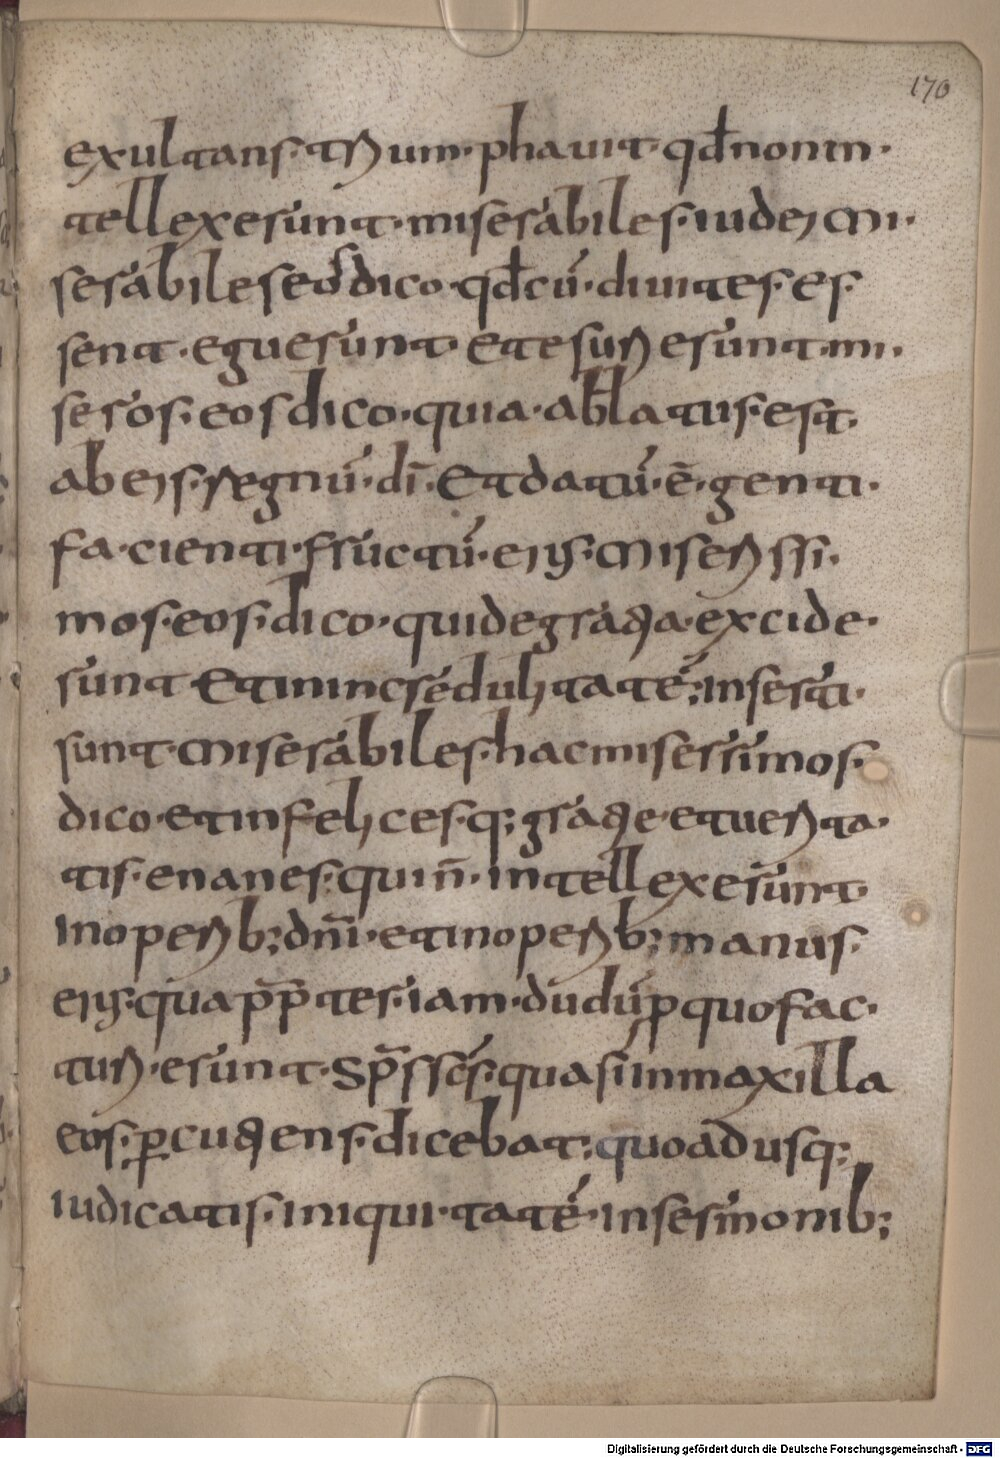 170
exultans· trium·phauit· qđ nonin·
tellexerunt· miserabiles· iudei Mi·
serabiles eos dico· qđ cū· diuites· es
sent· eguerunt· etesurierunt· mi·
seros· eos dico· quia· ablatus· est·
ab eis· regnū· dī· Et datū· ē· genti·
fa·cienti· fructū· eius· Miserissi·
mos· eos· dico· qui de gratia· excide·
runt Et in incredulitatē; inserti·
sunt· Miserabiles· hac miserrimos·
dico· et infelices· q; gratie· et uerita·
tis· enanes· qui ñ· intellexerunt·
in operib; dñi· et in operib; manus·
eius· qua pp̄tes· iam· dudū p quo fac·
turi·erunt· Sp̄s sc̄s· quasi in maxilla
eos· percutiens· dicebat; quo ad usq;
iudicatis· iniqui·tatē· in sermonib;
Digitalisierung gefördert durch die Deutsche Forschungsgemeinschaft - DFG